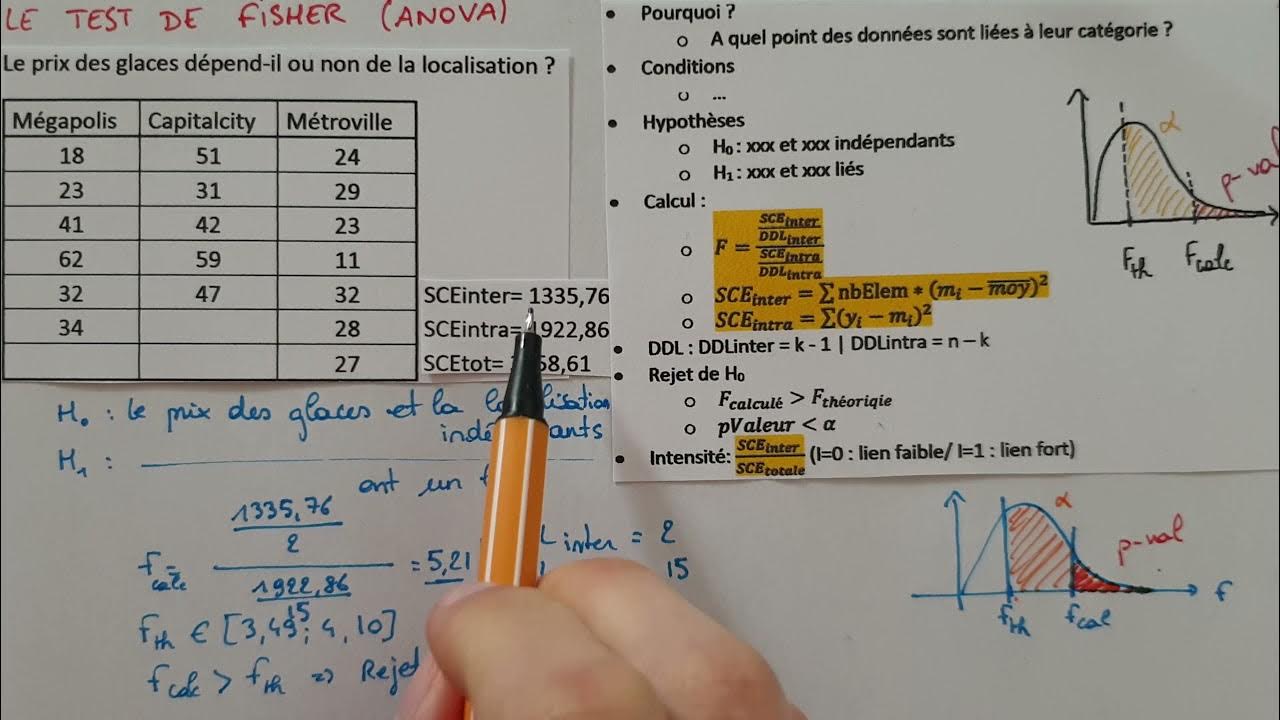 LE TEST DE FISHER (ANOVA)
Le prix des glaces dépend-il ou non de la localisation ?
Mégapolis Capitalcity Métroville
18 51 24
23 31 29
41 42 23
62 59 11
32 47 32
34 28
27
SCEinter= 1335,76
SCEintra= 1922,86
SCEtot= 58,61
H₀ : le prix des glaces et la localisation
H₁ :
ont un
1335,76
2
fcalc = = 5,21
1922,86
15
Linter = 2
15
fth ∈ [3,49 ; 4,10]
fcalc > fth => Rejet
• Pourquoi ?
o A quel point des données sont liées à leur catégorie ?
• Conditions
o ...
• Hypothèses
o H₀ : xxx et xxx indépendants
o H₁ : xxx et xxx liés
• Calcul :
o F = SCEinter / DDLinter / SCEintra / DDLintra
o SCEinter = ∑ nbElem * (mi − moy)²
o SCEintra = ∑(yi − mi)²
• DDL : DDLinter = k - 1 | DDLintra = n – k
• Rejet de H₀
o Fcalculé > Fthéoriqie
o pValeur < α
• Intensité: SCEinter / SCEtotale (I=0 : lien faible/ I=1 : lien fort)
α
p-val
Fth Fcalc
α
p-val
f
fth fcal